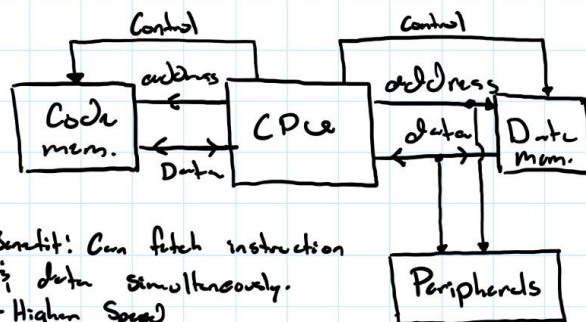 Control
Control
address
address
Code
mem.
CPU
data
Data
mem.
Data
Benefit: Can fetch instruction
& data simultaneously.
- Higher Speed
Peripherals